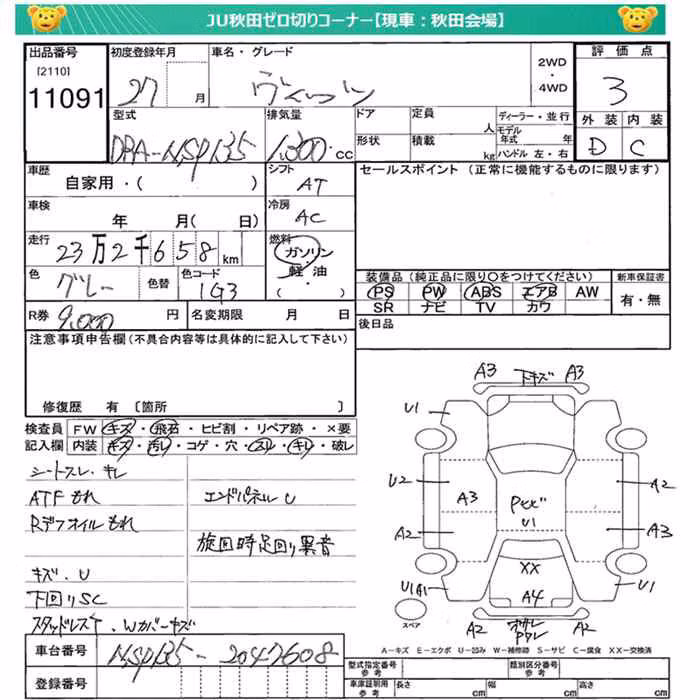 JU秋田ゼロ切りコーナー【現車：秋田会場】
出品番号
[2110]
11091
初度登録年月
27 月
車名・グレード
ヴィッツ
2WD
・
4WD
評価点
3
外装 内装
D C
型式
DBA-NSP135
排気量
1,300 cc
ドア
定員
人
形状
積載
kg
ディーラー・並行
モデル年式 年
ハンドル 左・右
車歴
自家用・( )
シフト
AT
車検
年 月( 日)
冷房
AC
走行
23万2千658 km
燃料
ガソリン
・
軽油
( )
色
グレー
色替
色コード
1G3
R券
9,000 円
名変期限 月 日
セールスポイント（正常に機能するものに限ります）
装備品（純正品に限り○をつけてください）
PS PW ABS エアB AW
SR ナビ TV カワ
新車保証書
有・無
後日品
注意事項申告欄（不具合内容等は具体的に記入して下さい）
修復歴 有 〔箇所 〕
検査員記入欄
FW キズ・飛石・ヒビ割・リペア跡・×要
内装 キズ・汚レ・コゲ・穴・スレ・キレ・破レ
シートスレ・キレ
ATFもれ
エンドパネルU
Rデフオイルもれ
旋回時足回り異音
キズ・U
下回りSC
スタッドレスT、Wカバーキズ
A3 下キズ A3
U1
U2
A2
A3
A2
A3
U1
XX
A4
U1A1
U1
A2
A2
スペア
A－キズ E－エクボ U－凹み W－補修跡 S－サビ C－腐食 XX－交換済
車台番号
NSP135-2047608
登録番号
型式指定番号
参考
類別区分番号
参考
車庫証明用
参考
長さ cm 幅 cm 高さ cm